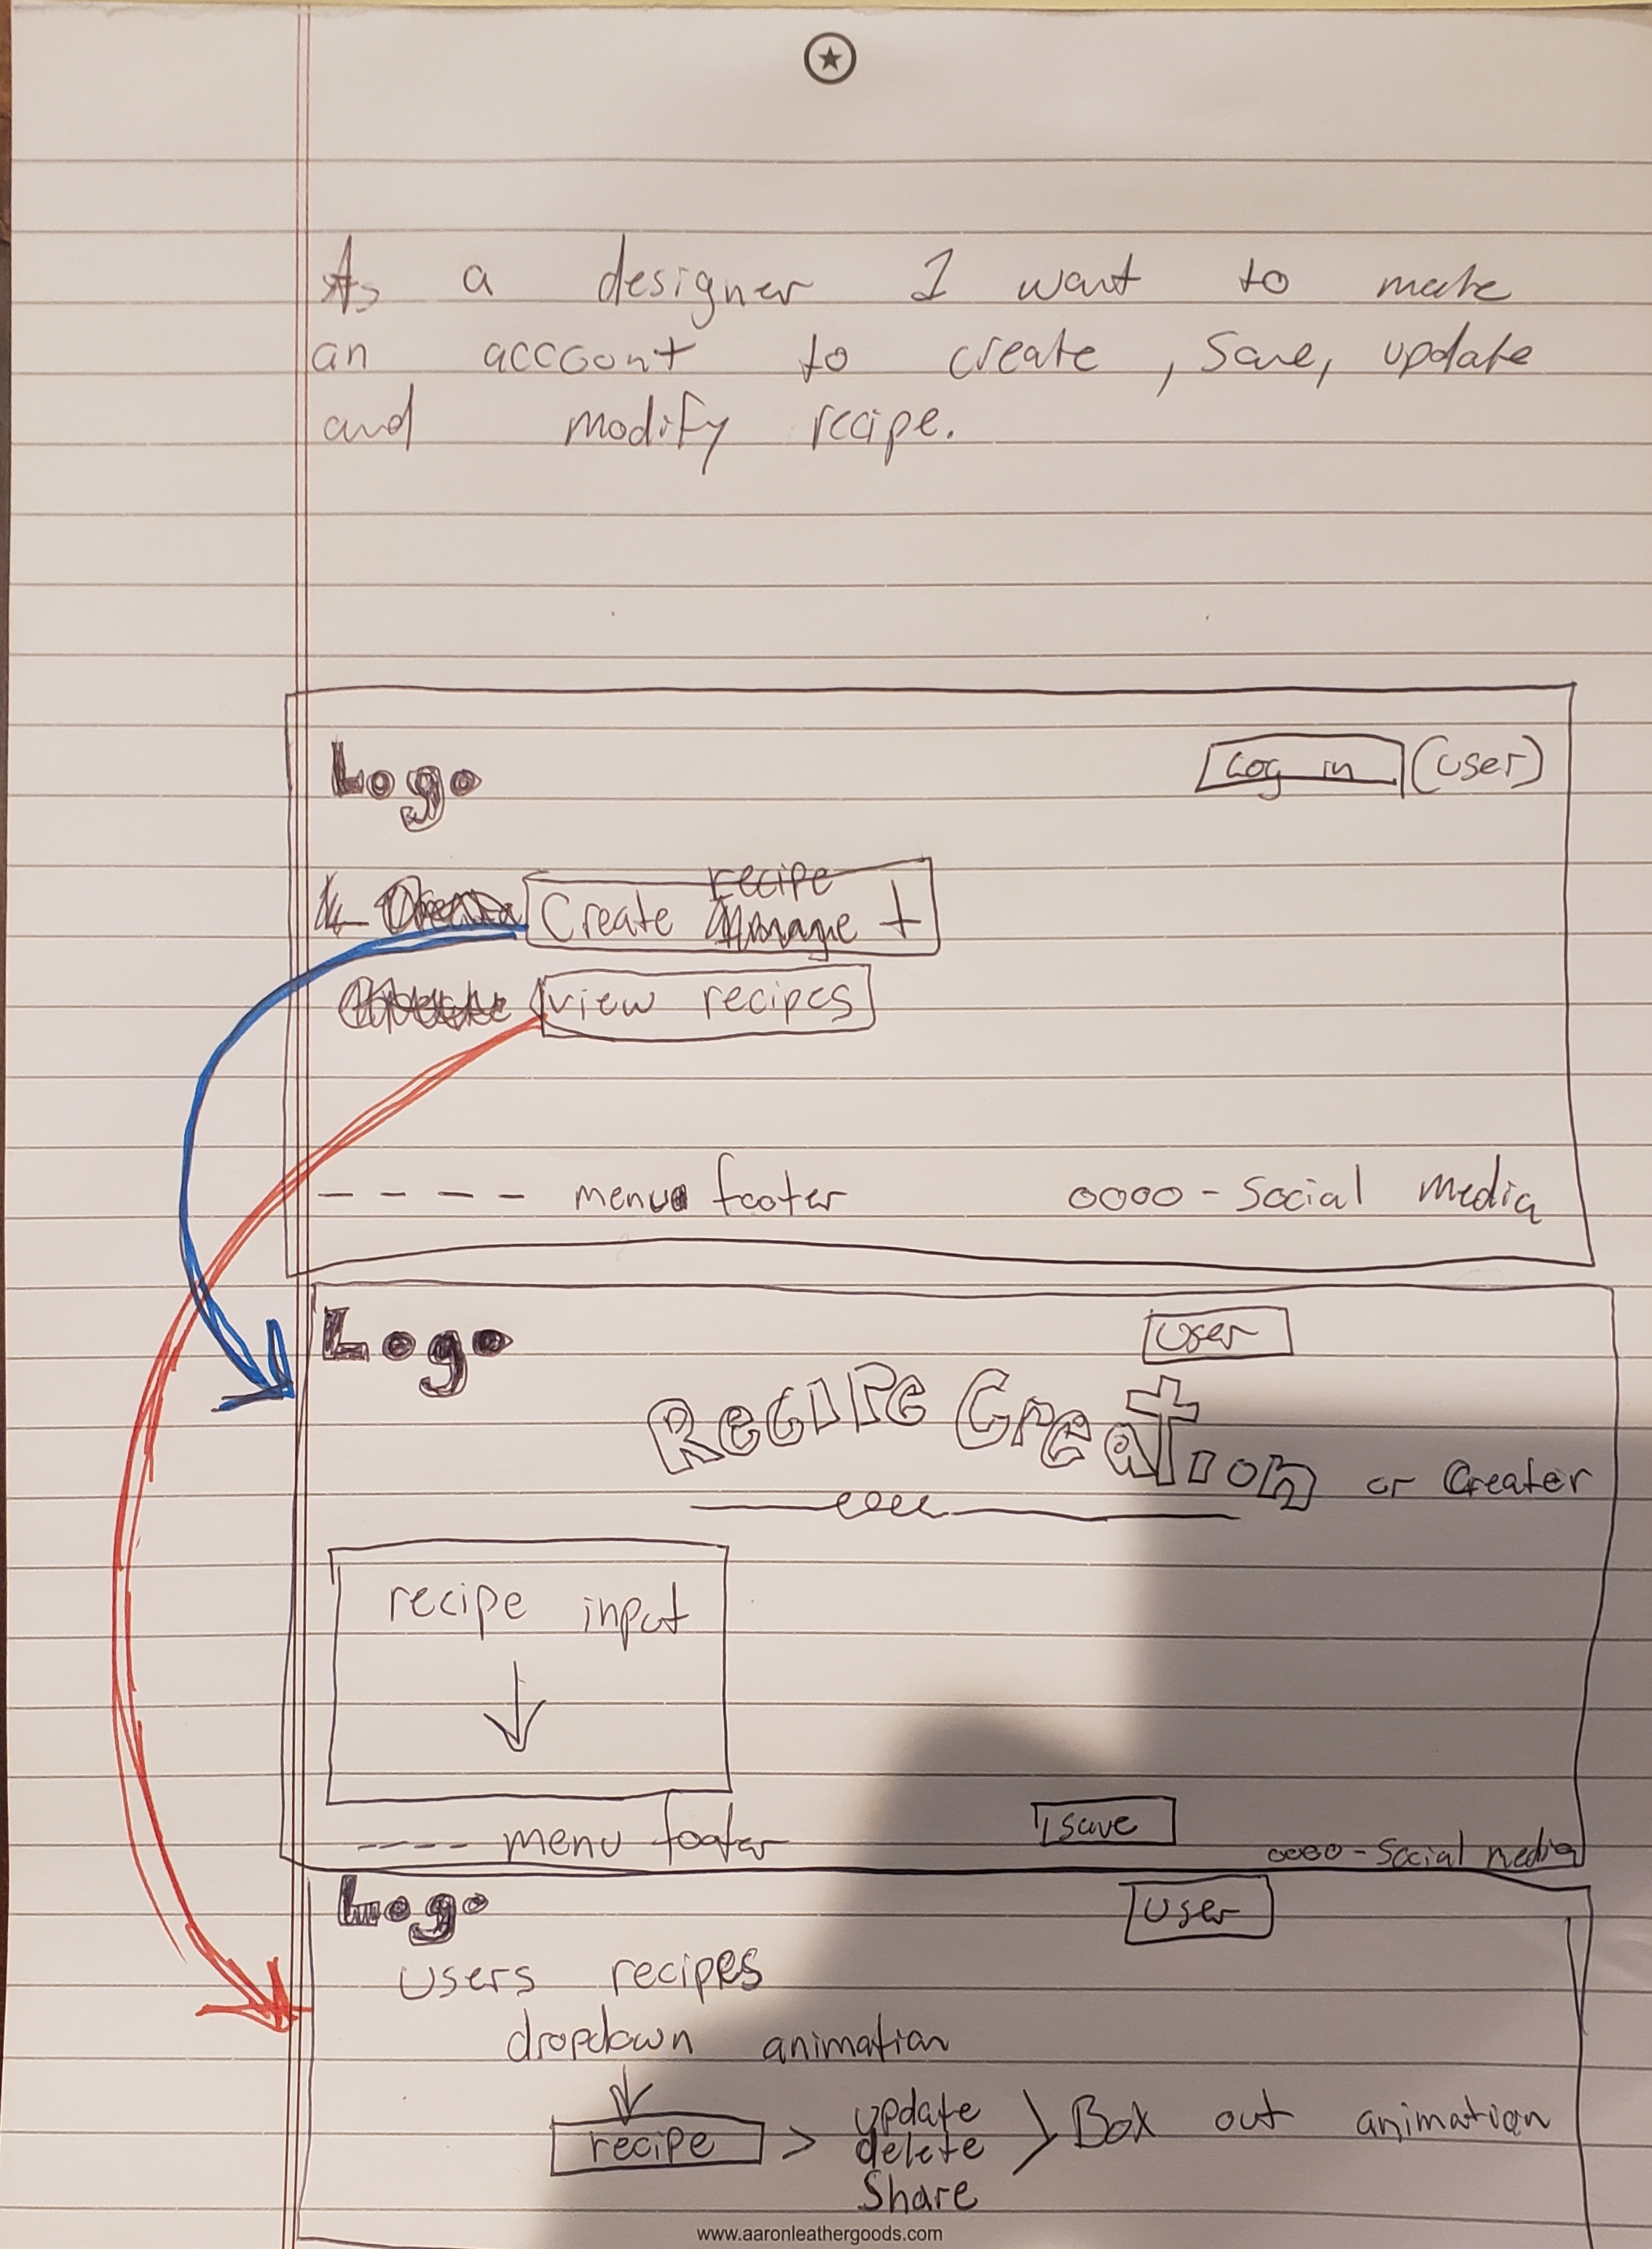 As a designer I want to make
an account to create, save, update
and modify recipe.
Logo
Log in (user)
recipe
Create Manage +
view recipes
---- menu footer
0000 - Social media
Logo
User
Recipe Creation or Creater
recipe input
save
---- menu footer
0000 - Social media
Logo
User
Users recipes
dropdown animation
update
recipe > delete > Box out animation
Share
www.aaronleathergoods.com